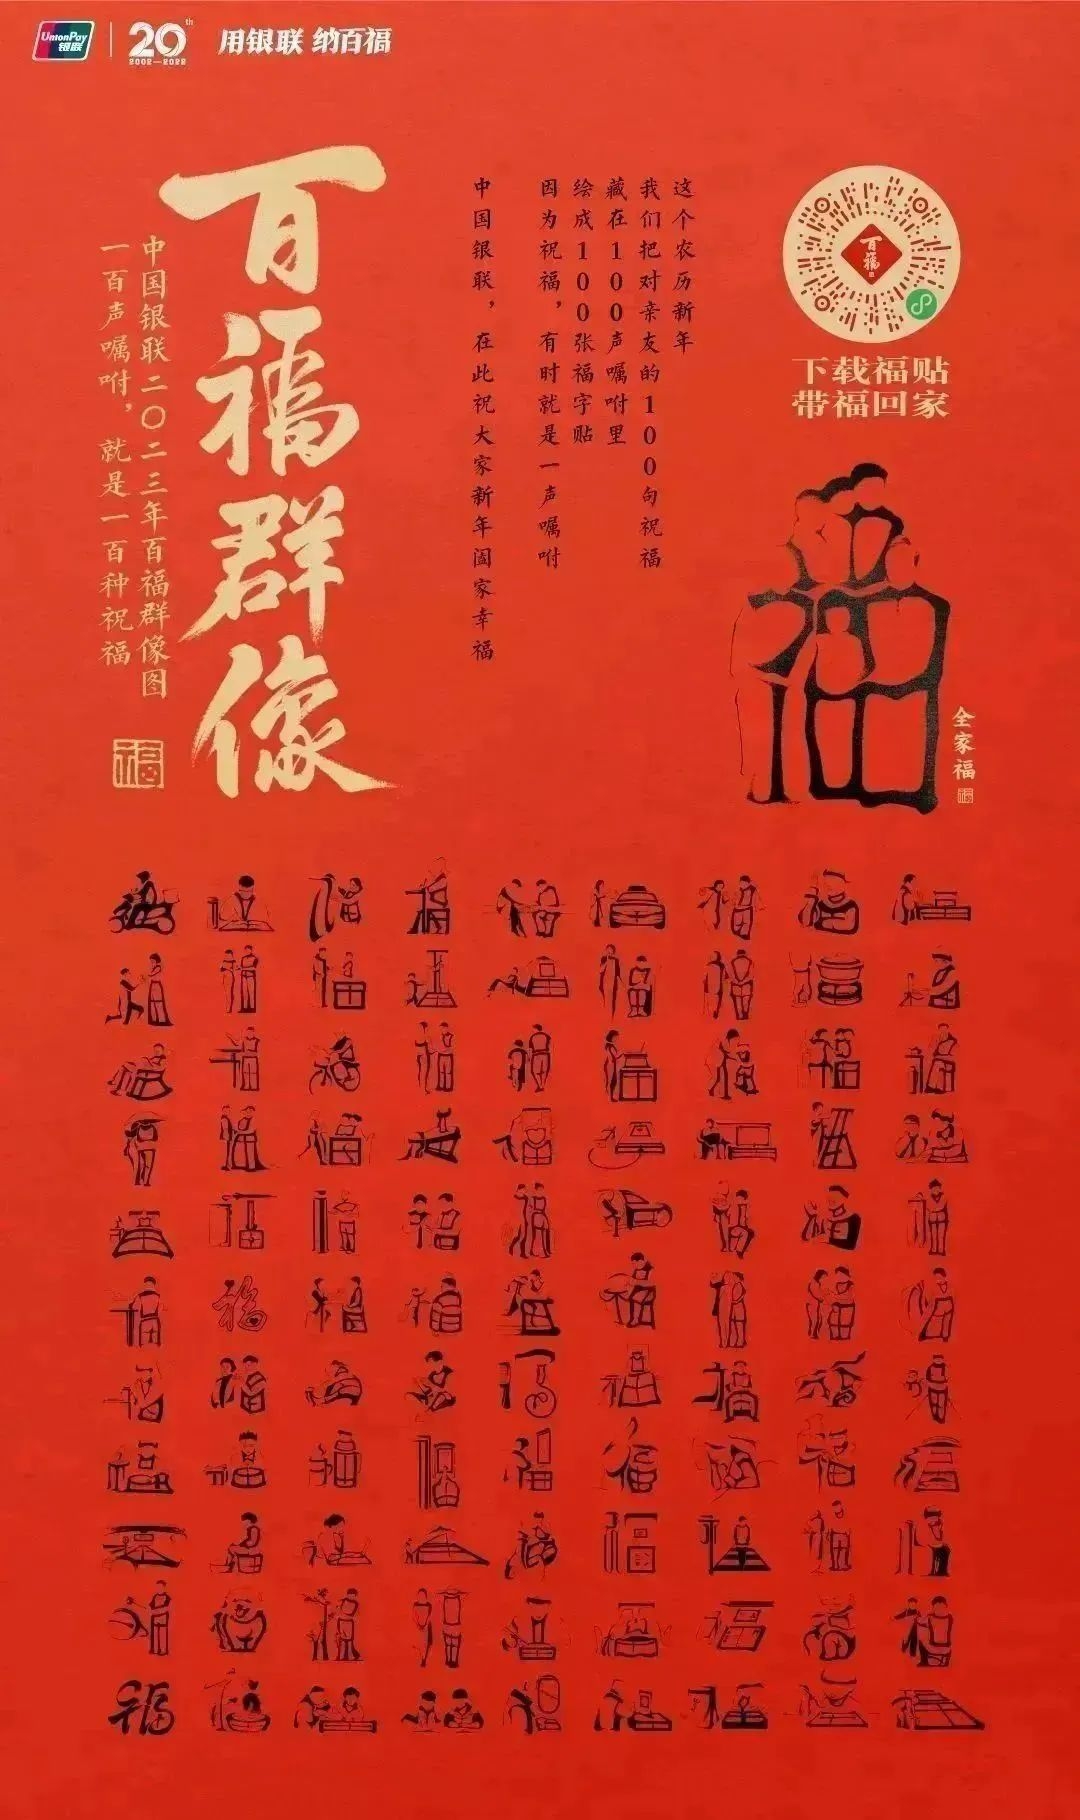 UnionPay
银联
20th
2002—2022
用银联 纳百福
百福群像
中国银联二〇二三年百福群像图
一百声嘱咐，就是一百种祝福
福
这个农历新年
我们把对亲友的100句祝福
藏在100声嘱咐里
绘成100张福字贴
因为祝福，有时就是一声嘱咐
中国银联，在此祝大家新年阖家幸福
百福
下载福贴
带福回家
福
全家福
福